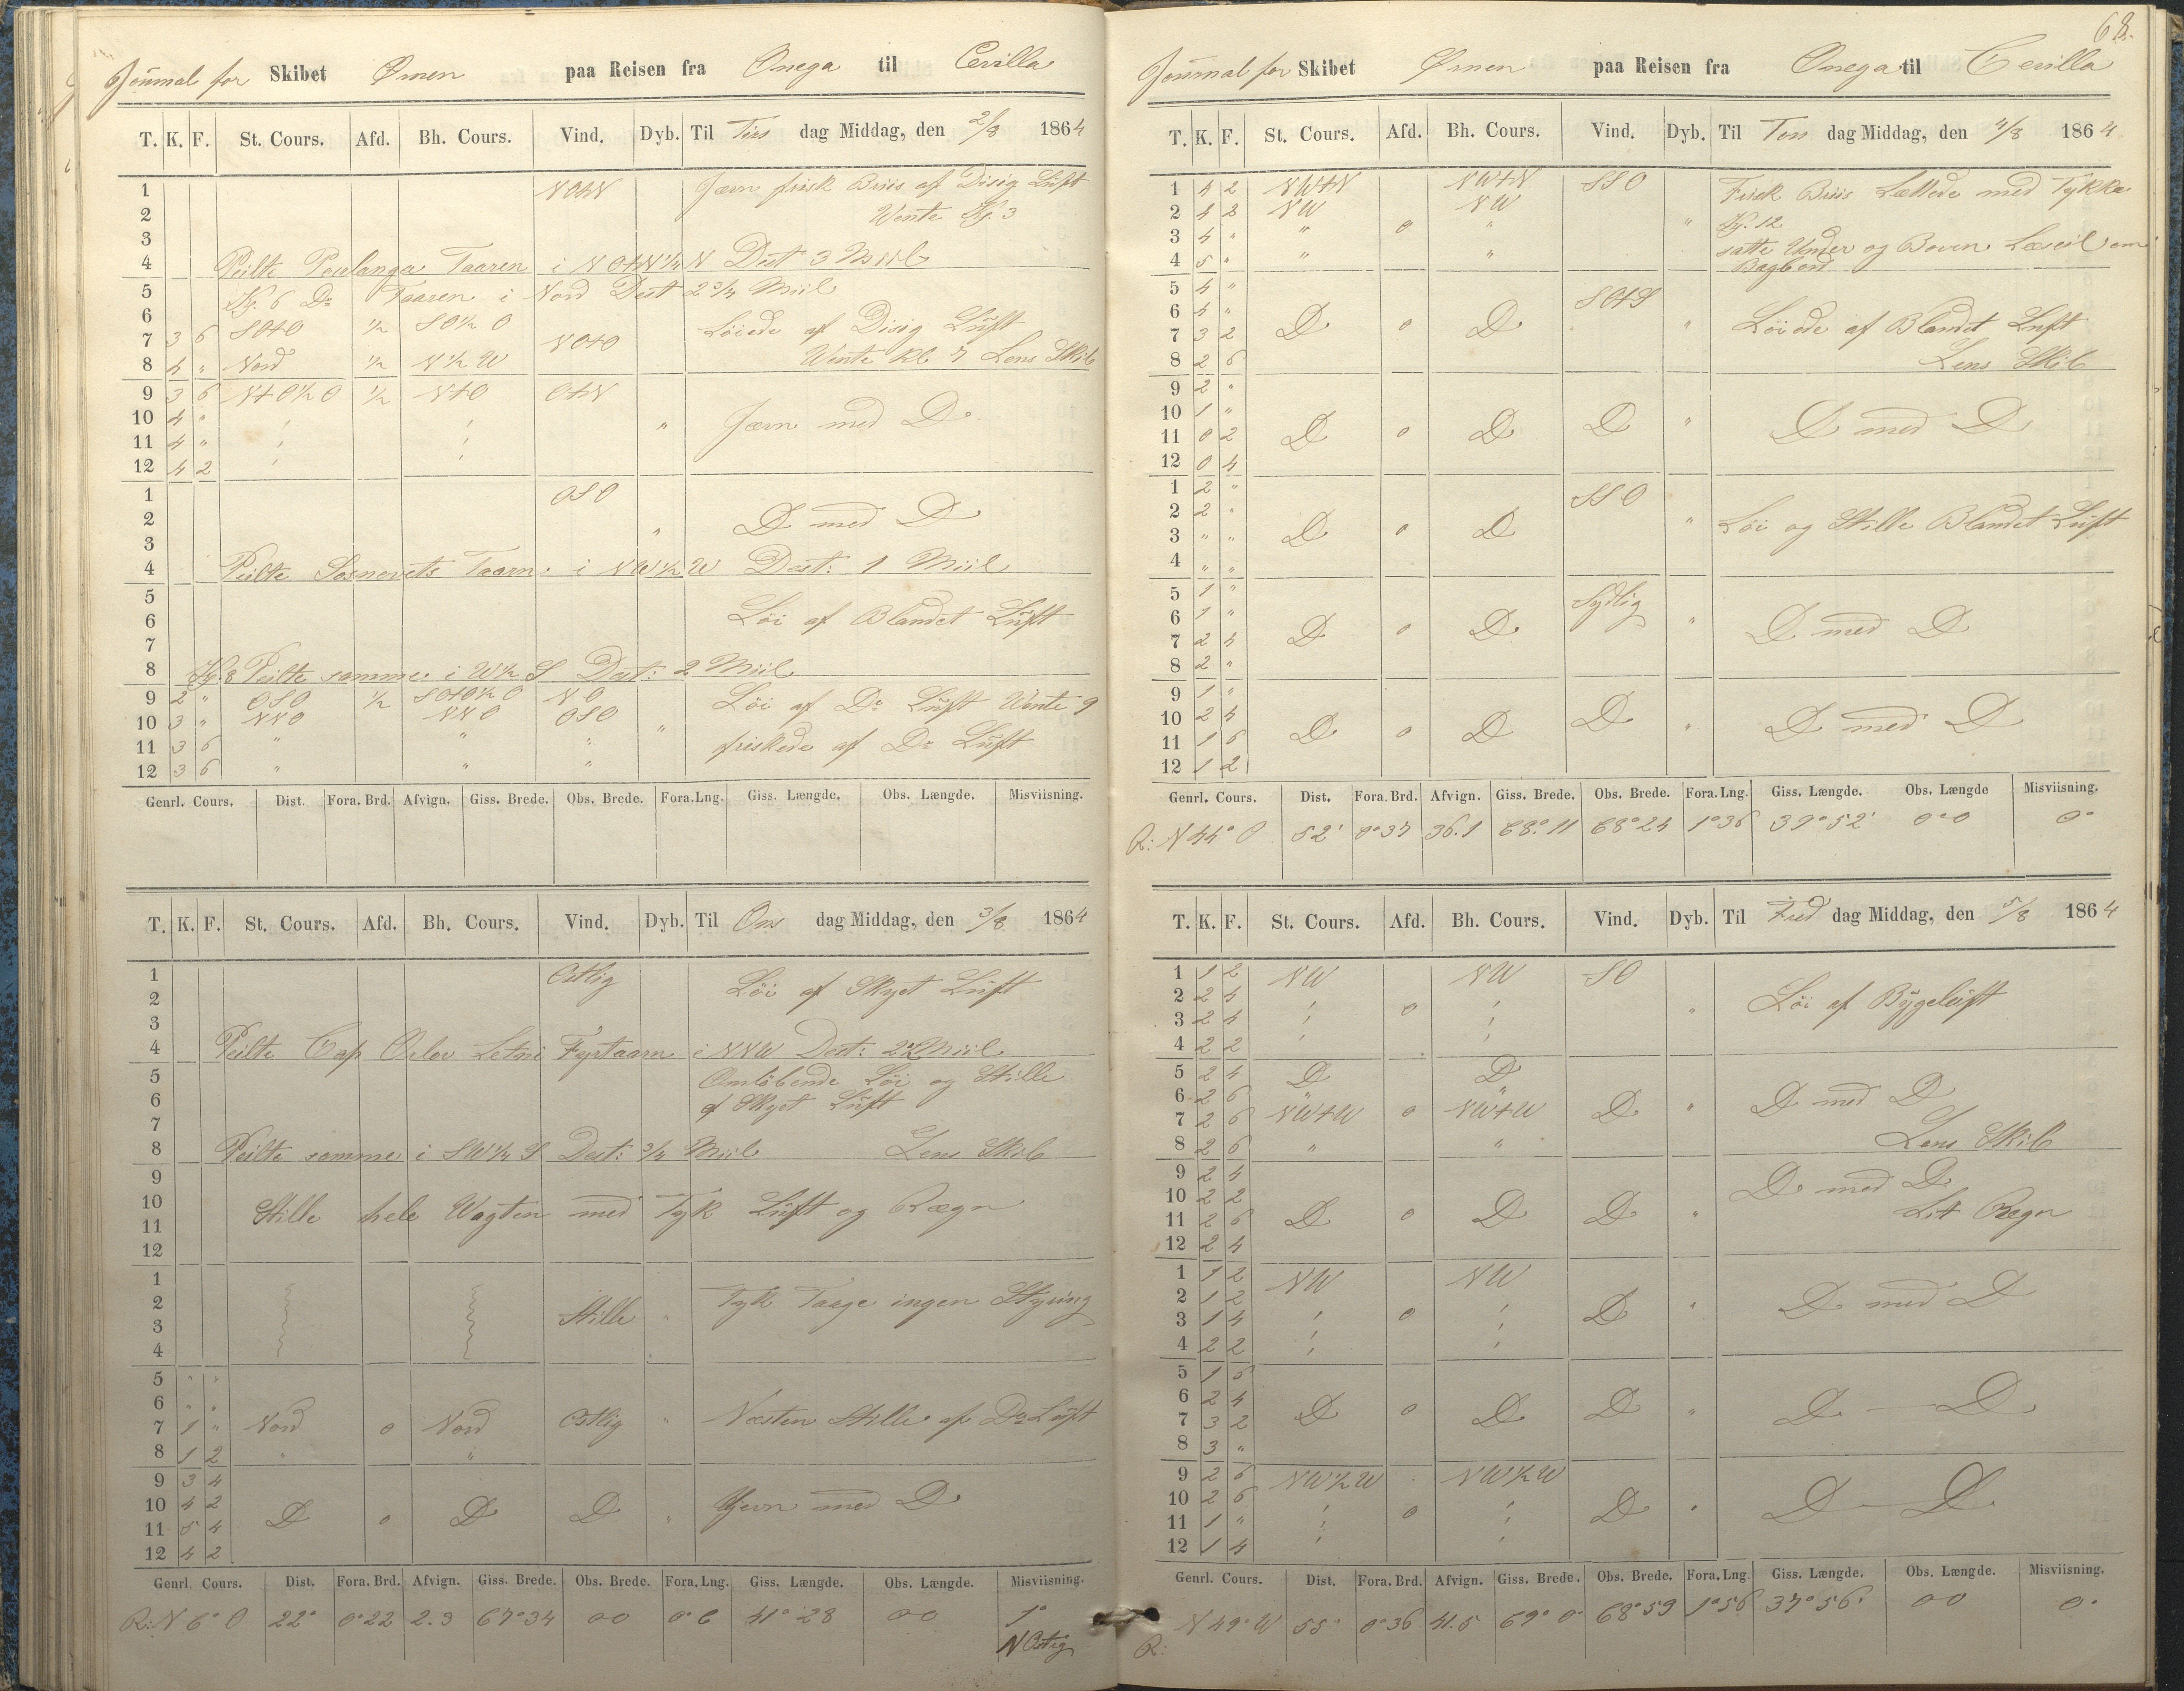 Journal for Skibet Ørnen paa Reisen fra Onega til Cevilla
T. K. F. St. Cours. Afd. Bh. Cours. Vind. Dyb. Til Tirs dag Middag, den 2/8 1864
1 NOtN Jævn frisk Briis af Disig Luft
2 Vente Kl. 3
3
4 Peilte Taaren i NOtN¼N Dist 3 Miil
5 Kl. 6 Do Taaren i Nord Dist 2¾ Miil
6 SOtO ½ SO½O Løiede af Disig Luft
7 3 6 NOtO
8 4 " Nord ½ N½W Vente Kl. 7 Lens Skib
9 3 6 NtO½O ½ NtO OtN
10 4 " " Jævn med Do
11 4 "
12 4 2
1 OSO
2 Do med Do
3 "
4 Peilte Sosnovets Taarn i NW½W Dist: 1 Miil
5
6 Løi af Blandet Luft
7
8 Kl. 8 Peilte samme i W½S Dist: 2 Miil
9 2 " OSO ½ SOtO½O NO Løi af Do Luft Vente 9
10 3 " NNO NNO OSO "
11 3 6 " " " friskede af Do Luft
12 3 6 " " "
Genrl. Cours. Dist. Fora. Brd. Afvign. Giss. Brede. Obs. Brede. Fora. Lng. Giss. Længde. Obs. Længde. Misviisning.
T. K. F. St. Cours. Afd. Bh. Cours. Vind. Dyb. Til Ons dag Middag, den 3/8 1864
1 Ostlig Løi af Skyet Luft
2
3
4 Peilte Cap Orlov Letni Fyrtaarn i NNW Dist: Miil
5 Omløbende Løi og Stille
6 af Skyet Luft
7
8 Peilte samme i SW¼S Dist: ¾ Miil Lens Skib
9
10 Stille hele Vagten med Tyk Luft og Rægn
11
12
1
2 Stille " Tyk Taage ingen Styring
3
4
5 " "
6 " "
7 1 " Nord o Nord Ostlig " Næsten Stille af Do Luft
8 1 2 " "
9 3 4
10 4 2 Do o Do Do " Jevn med Do
11 5 4
12 4 2
Genrl. Cours. Dist. Fora. Brd. Afvign. Giss. Brede. Obs. Brede. Fora. Lng. Giss. Længde. Obs. Længde. Misviisning.
R: N 6° O 22° 0°22 2.3 67°34 oo 0°6 41°28 oo 1°
NOstig
68.
Journal for Skibet Ørnen paa Reisen fra Onega til Cevilla
T. K. F. St. Cours. Afd. Bh. Cours. Vind. Dyb. Til Tors dag Middag, den 4/8 1864
1 4 2 NWtN NWtN SSO Frisk Briis Lættede med Tykke
2 4 2 NW NW Kl. 12
3 4 " " o " " satte Under og Boven Læseil om
4 5 " " " Bagbord
5 4 " SOtS
6 4 " Do o Do " Løiede af Blandet Luft
7 3 2
8 2 6 Lens Skib
9 2 "
10 1 "
11 0 2 Do o Do Do " Do med Do
12 0 4
1 2 " SSO
2 2 " " Løi og Stille Blandet Luft
3 " " Do o Do
4 " "
5 1 " Sydlig
6 1 " "
7 2 4 Do o Do Do med Do
8 2 "
9 1 "
10 2 4 Do o Do Do " Do med Do
11 1 6
12 1 2
Genrl. Cours. Dist. Fora. Brd. Afvign. Giss. Brede. Obs. Brede. Fora. Lng. Giss. Længde. Obs. Længde Misviisning.
R: N 44° O 52' 0°37 36.1 68°11 68°24 1°36 39°52' 0°0 0°
T. K. F. St. Cours. Afd. Bh. Cours. Vind. Dyb. Til Fred dag Middag, den 5/8 1864
1 1 2 NW NW SO
2 2 4 o " Løi af Bygeluft
3 2 4
4 2 2
5 2 4 Do Do
6 2 6 Do med Do
7 2 6 NWtW o NWtW Do "
8 2 6 " " Lens Skib
9 2 4 Do med Do
10 2 2 Lit Rægn
11 2 6 Do o Do Do "
12 2 4
1 1 2 NW NW
2 1 2 Do med Do
3 1 4 o Do "
4 2 2
5 1 6
6 2 4 Do o Do Do " Do — Do
7 3 2
8 3 "
9 2 6 NW½W NW½W
10 2 6 o Do " Do — Do
11 1 "
12 1 4
Genrl. Cours. Dist. Fora. Brd. Afvign. Giss. Brede. Obs. Brede. Fora. Lng. Giss. Længde. Obs. Længde. Misviisning.
R: N 49° W 55° 0°36 41.5 69°0° 68°59 1°56 37°56' oo 0°